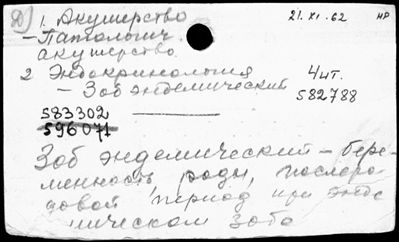 1. Акушерство 21.XI.62 НР
– Патологич.
акушерство.
2 Эндокринология 4 шт.
– Зоб эндемический 582788
583302
596071
Зоб эндемический – бере-
менность, роды, послеро-
довой период при энде
мическом зобе